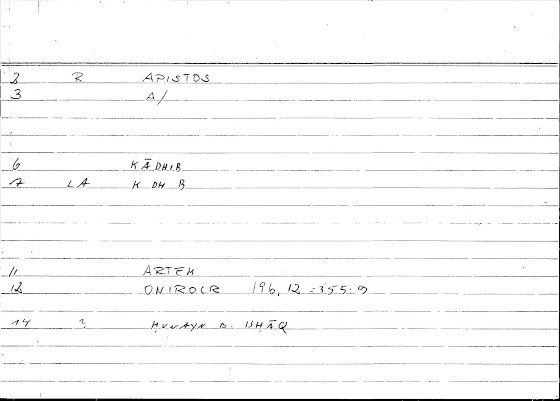 2 R APISTOS
3 A/
6 KĀDHIB
7 LA KDHB
11 ARTEM
12 ONIROCR 196, 12 = 355.9
14 ? ḤUNAYN B. ISḤĀQ